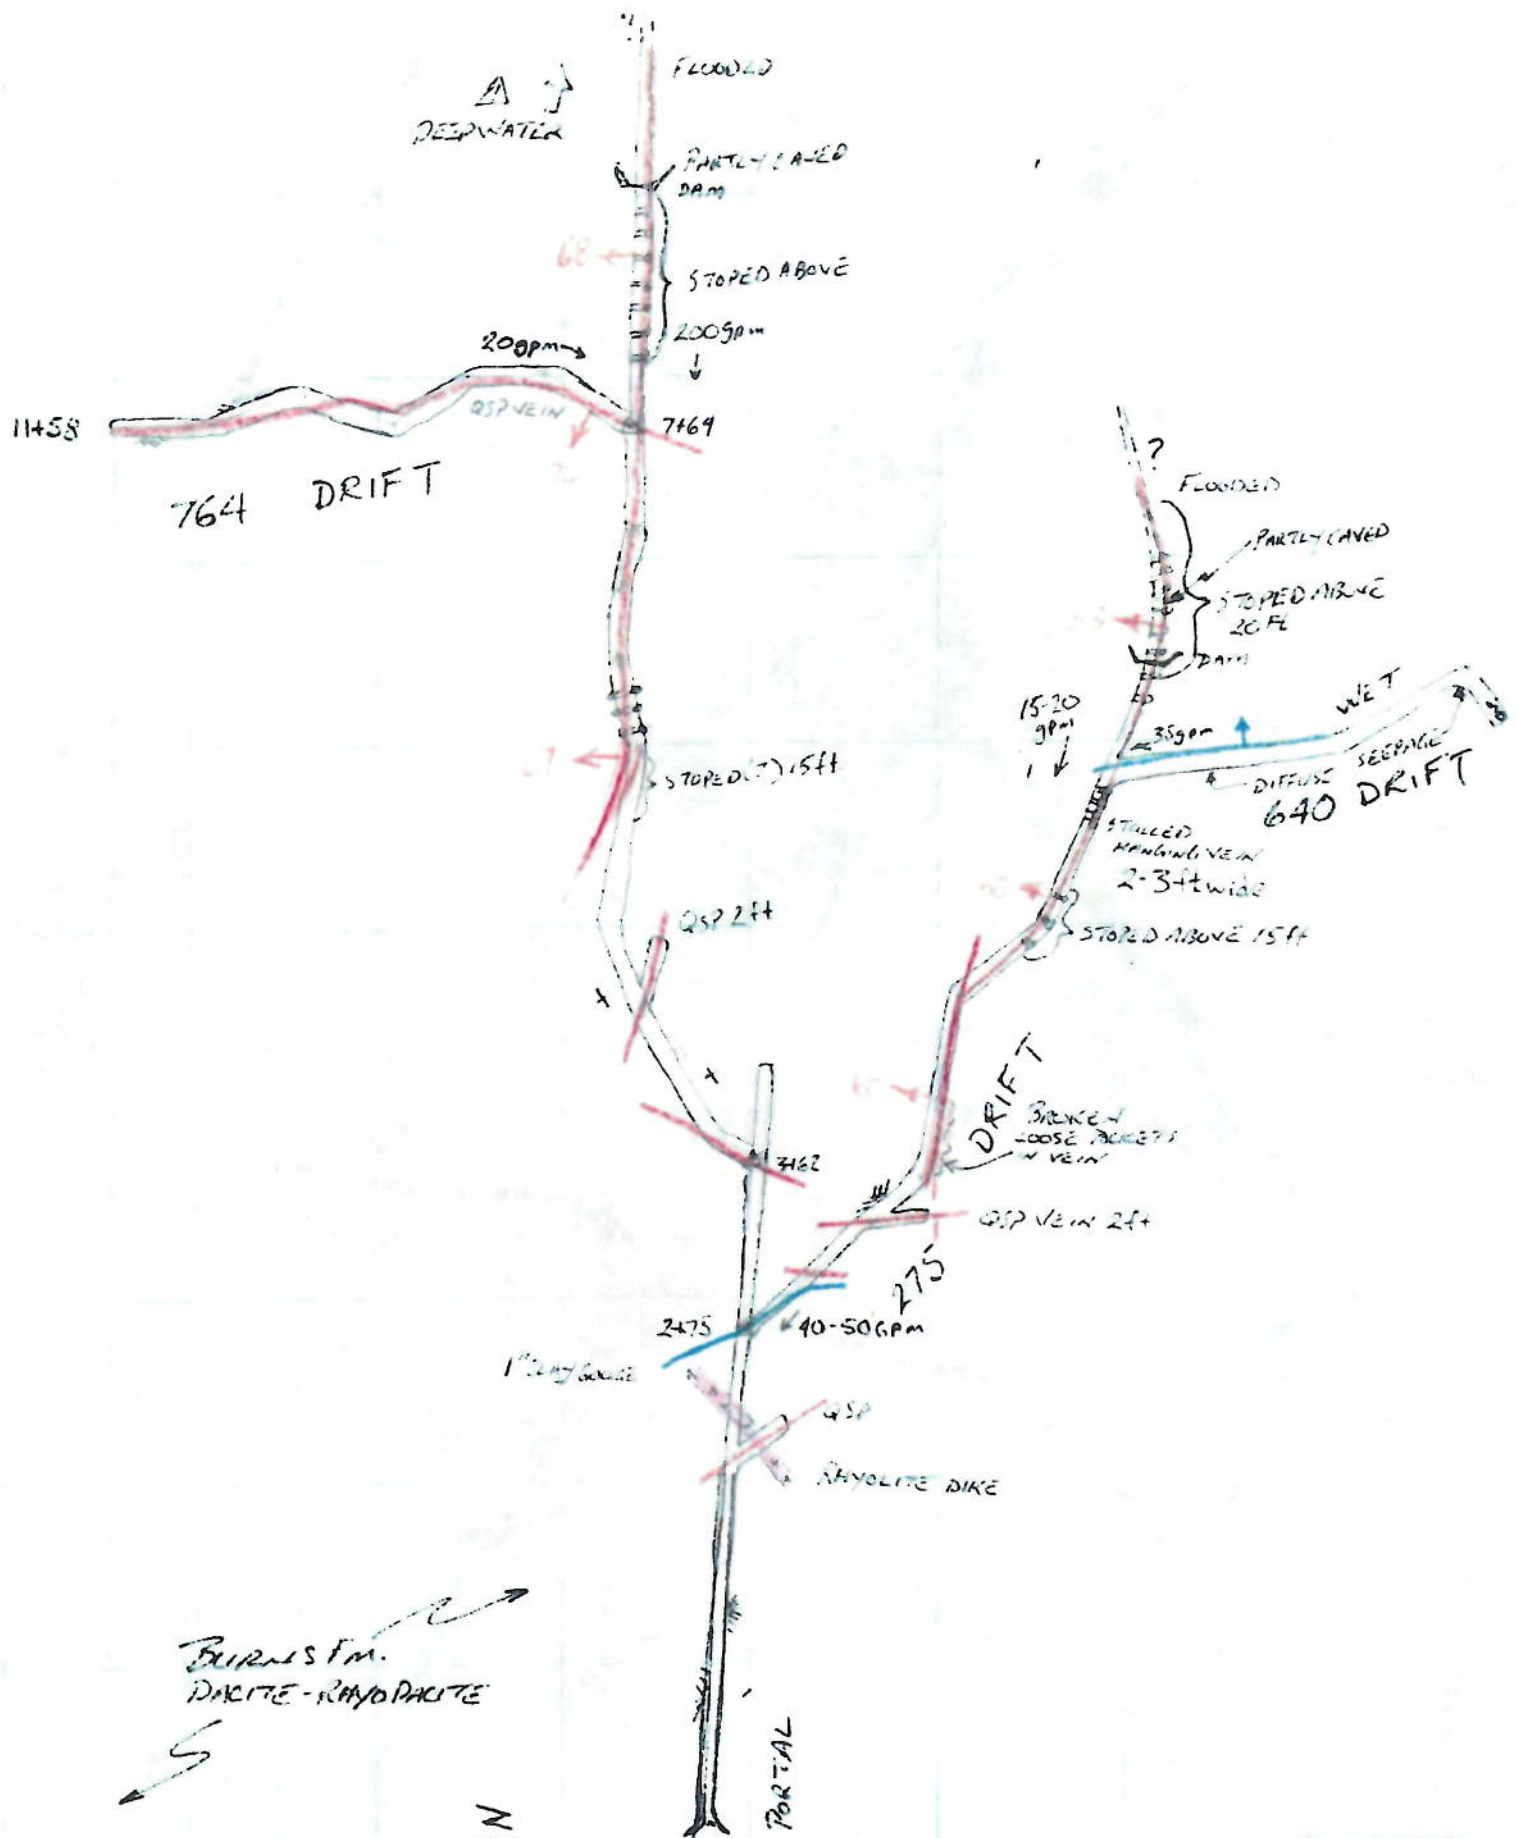 FLOODED
DEEPWATER
PARTLY CAVED
DAM
68
STOPED ABOVE
200gpm
20gpm
QSP VEIN
11+58
7+64
764 DRIFT
?
FLOODED
PARTLY CAVED
STOPED ABOVE
20 Ft
DAM
15-20
gpm
35gpm
WET
DIFFUSE SEEPAGE
640 DRIFT
STOPED(?) 15ft
STULLED
HANGING VEIN
2-3ft wide
STOPED ABOVE 15ft
QSP 2ft
DRIFT
BROKEN
LOOSE POCKETS
IN VEIN
3+62
QSP VEIN 2ft
275
2+75
40-50GPM
1" CLAY GOUGE
QSP
RHYOLITE DIKE
BURNS FM.
DACITE-RHYODACITE
PORTAL
N